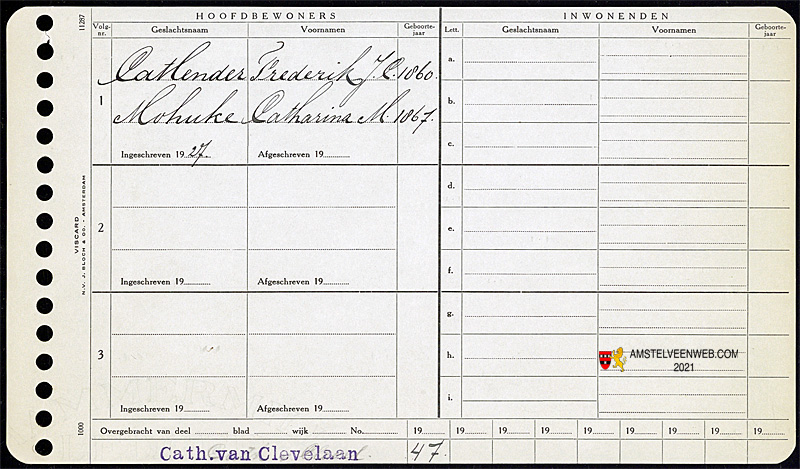 11287
HOOFDBEWONERS
INWONENDEN
Volg-nr.
Geslachtsnaam
Voornamen
Geboorte-jaar
Lett.
Geslachtsnaam
Voornamen
Geboorte-jaar
1
Catlender Frederik J. C. 1860.
Mohuke Catharina M. 1867.
Ingeschreven 1927.
Afgeschreven 19
2
Ingeschreven 19
Afgeschreven 19
3
Ingeschreven 19
Afgeschreven 19
a.
b.
c.
d.
e.
f.
g.
h.
i.
VISCARD
N.V. J. BLOCH & CO. - AMSTERDAM
1000
AMSTELVEENWEB.COM
2021
Overgebracht van deel blad wijk No. 19 19 19 19 19 19 19 19 19
Cath.van Clevelaan 47.